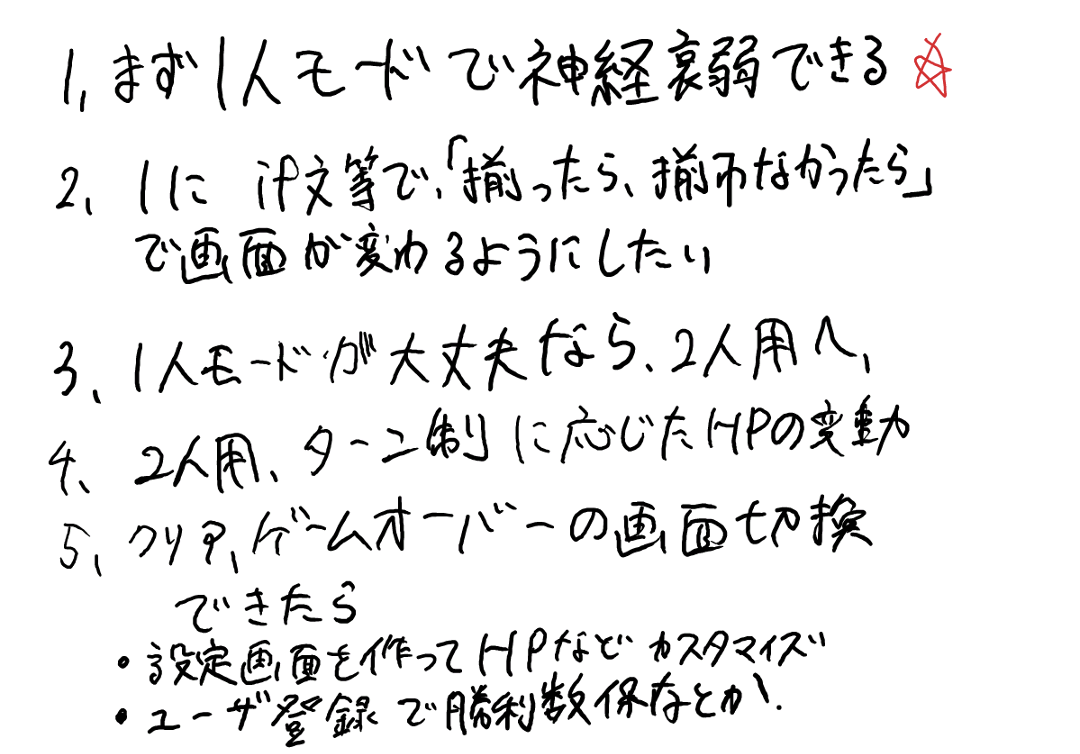 1, まず1人モードで神経衰弱できる
2, 1に if文等で、「揃ったら、揃わなかったら」
で画面が変わるようにしたい
3、1人モードが大丈夫なら、2人用へ、
4、2人用、ターン制に応じたHPの変動
5、クリア、ゲームオーバーの画面切換
できたら
・設定画面を作ってHPなど カスタマイズ
・ユーザ登録で勝利数保存とか、